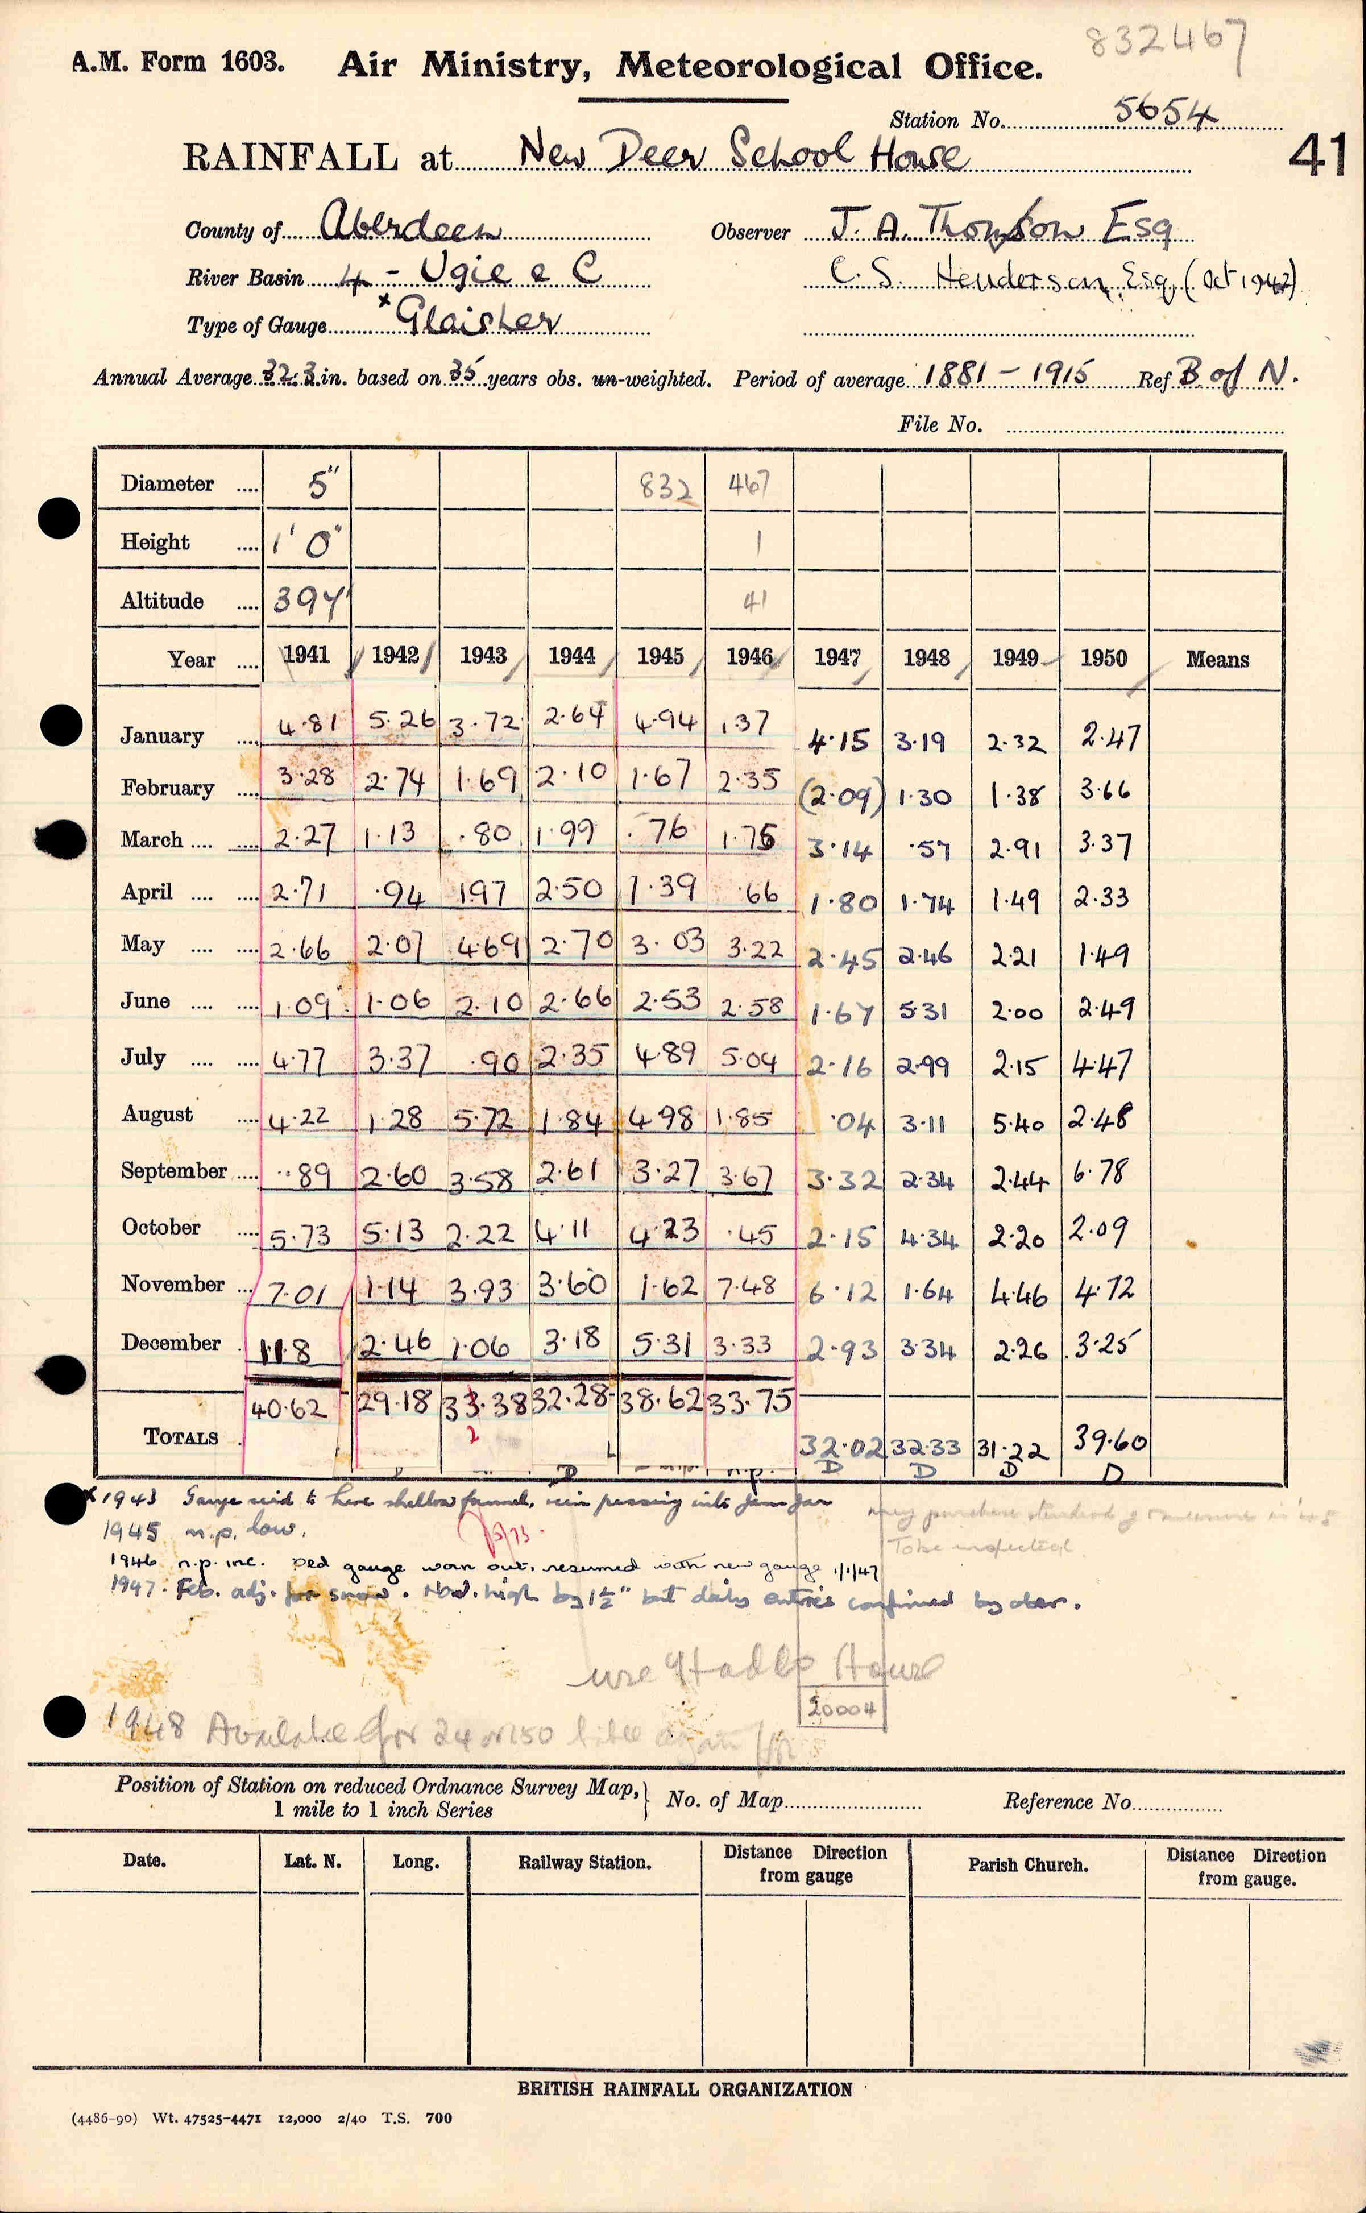 832467
A.M. Form 1603. Air Ministry, Meteorological Office.
Station No. 5654
RAINFALL at New Deer School House
41
County of Aberdeen Observer J. A. Thomson Esq
River Basin 4 - Ugie & C C. S. Henderson, Esq, (Oct 1942)
Type of Gauge × Glaisher
Annual Average 32.3 in. based on 35 years obs. un-weighted. Period of average 1881 - 1915 Ref B of N.
File No.
Diameter .... 5" 832 467
Height .... 1' 0" 1
Altitude .... 394' 41
Year .... 1941 1942 1943 1944 1945 1946 1947 1948 1949 1950 Means
January .... 4.81 5.26 3.72 2.64 4.94 1.37 4.15 3.19 2.32 2.47
February .... 3.28 2.74 1.69 2.10 1.67 2.35 (2.09) 1.30 1.38 3.66
March .... .... 2.27 1.13 .80 1.99 .76 1.75 3.14 .57 2.91 3.37
April .... .... 2.71 .94 1.97 2.50 1.39 .66 1.80 1.74 1.49 2.33
May .... .... 2.66 2.07 4.69 2.70 3.03 3.22 2.45 2.46 2.21 1.49
June .... .... 1.09 1.06 2.10 2.66 2.53 2.58 1.67 5.31 2.00 2.49
July .... .... 4.77 3.37 .90 2.35 4.89 5.04 2.16 2.99 2.15 4.47
August .... 4.22 1.28 5.72 1.84 4.98 1.85 .04 3.11 5.40 2.48
September .... .89 2.60 3.58 2.61 3.27 3.67 3.32 2.34 2.44 6.78
October .... 5.73 5.13 2.22 4.11 4.23 .45 2.15 4.34 2.20 2.09
November ... 7.01 1.14 3.93 3.60 1.62 7.48 6.12 1.64 4.46 4.72
December . 1.18 2.46 1.06 3.18 5.31 3.33 2.93 3.34 2.26 3.25
40.62 29.18 33.38 32.28 38.62 33.75
2
TOTALS . 32.02 32.33 31.22 39.60
D D D D
× 1943 Gauge said to have shallow funnel, rain passing into jam jar
1945 n.p. low. To be inspected
1946 n.p. inc. Old gauge worn out, resumed with new gauge 1/1/47
1947. Feb. adj. for snow. Nov. high by 1½" but daily entries confirmed by obsr.
use House
20004
1948 Available for
Position of Station on reduced Ordnance Survey Map, 1 mile to 1 inch Series } No. of Map Reference No.
Date. Lat. N. Long. Railway Station. Distance Direction from gauge Parish Church. Distance Direction from gauge.
BRITISH RAINFALL ORGANIZATION
(4486-90) Wt. 47525-4471 12,000 2/40 T.S. 700